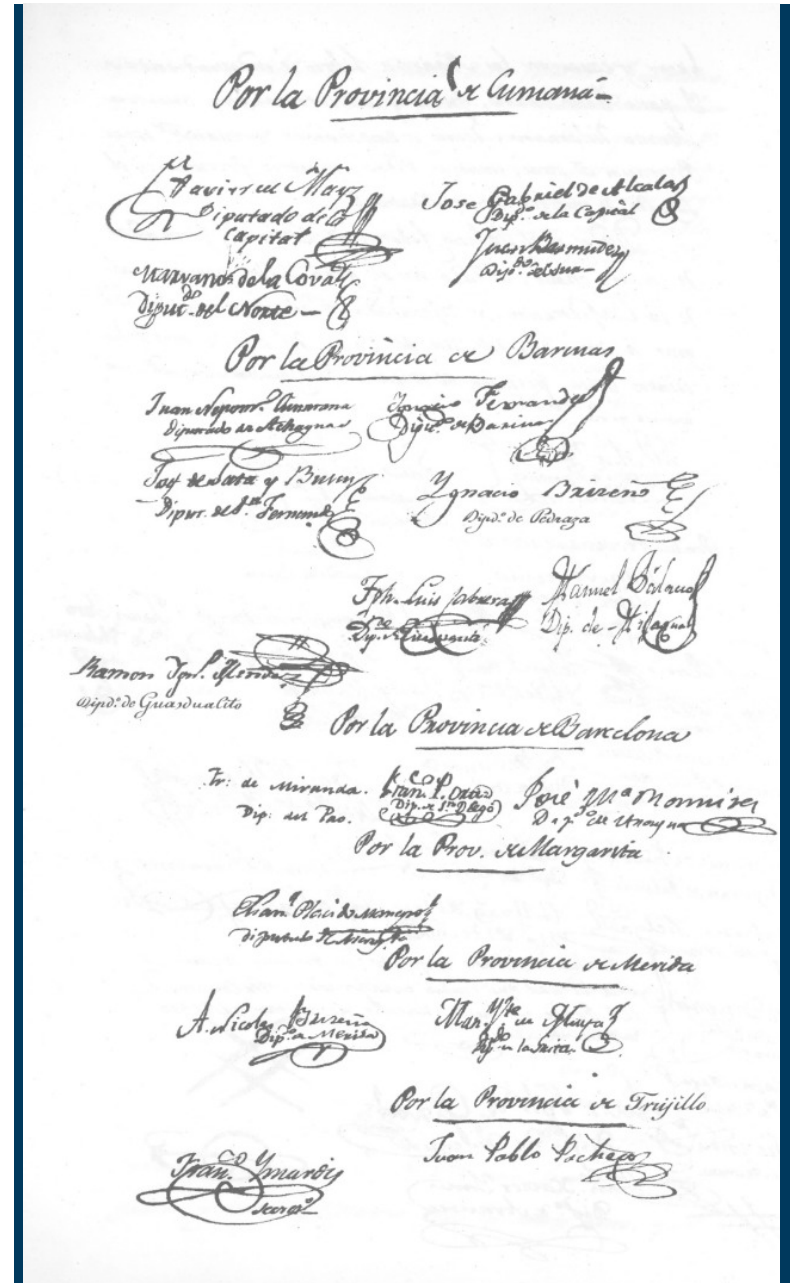 Por la Provincia de Cumaná
Fr.co Xavier de Mayz
Diputado de la
Capital
Jose Gabriel de Alcalá
Dip.º de la Capital
Juan Bermudez
Dip.do del Sur
Mariano de la Cova
Diput.do del Norte
Por la Provincia de Barinas
Juan Nepom.º Quintana
Diputado de Achaguas
Ignacio Fernandez
Diput.º de Barinas
Jos. de Sata y Bussy
Diput. de S.n Fernando
Ygnacio Brizeño
Dipd.º de Pedraza
Jph. Luis Cabrera
Dip. de Guanarito
Manuel Palacio
Dip. de Mijagual
Ramon Ygn.º Mendez
Dipd.º de Guasdualito
Por la Provincia de Barcelona
Fr: de Miranda.
Dip: del Pao.
Fran.co P. Ortiz
Dip. de S.n Diego
José M.ª Ramirez
Por la Prov. de Margarita
Man.l Placido Maneyro
diputado de Marg.ta
Por la Provincia de Merida
A. Nicolas Brizeño
Dip.º de Merida
Man.l Vte. de Maya
Dip.do de la Grita
Por la Provincia de Trujillo
Juan Pablo Pacheco
Fran.co Ysnardy
Secret.º